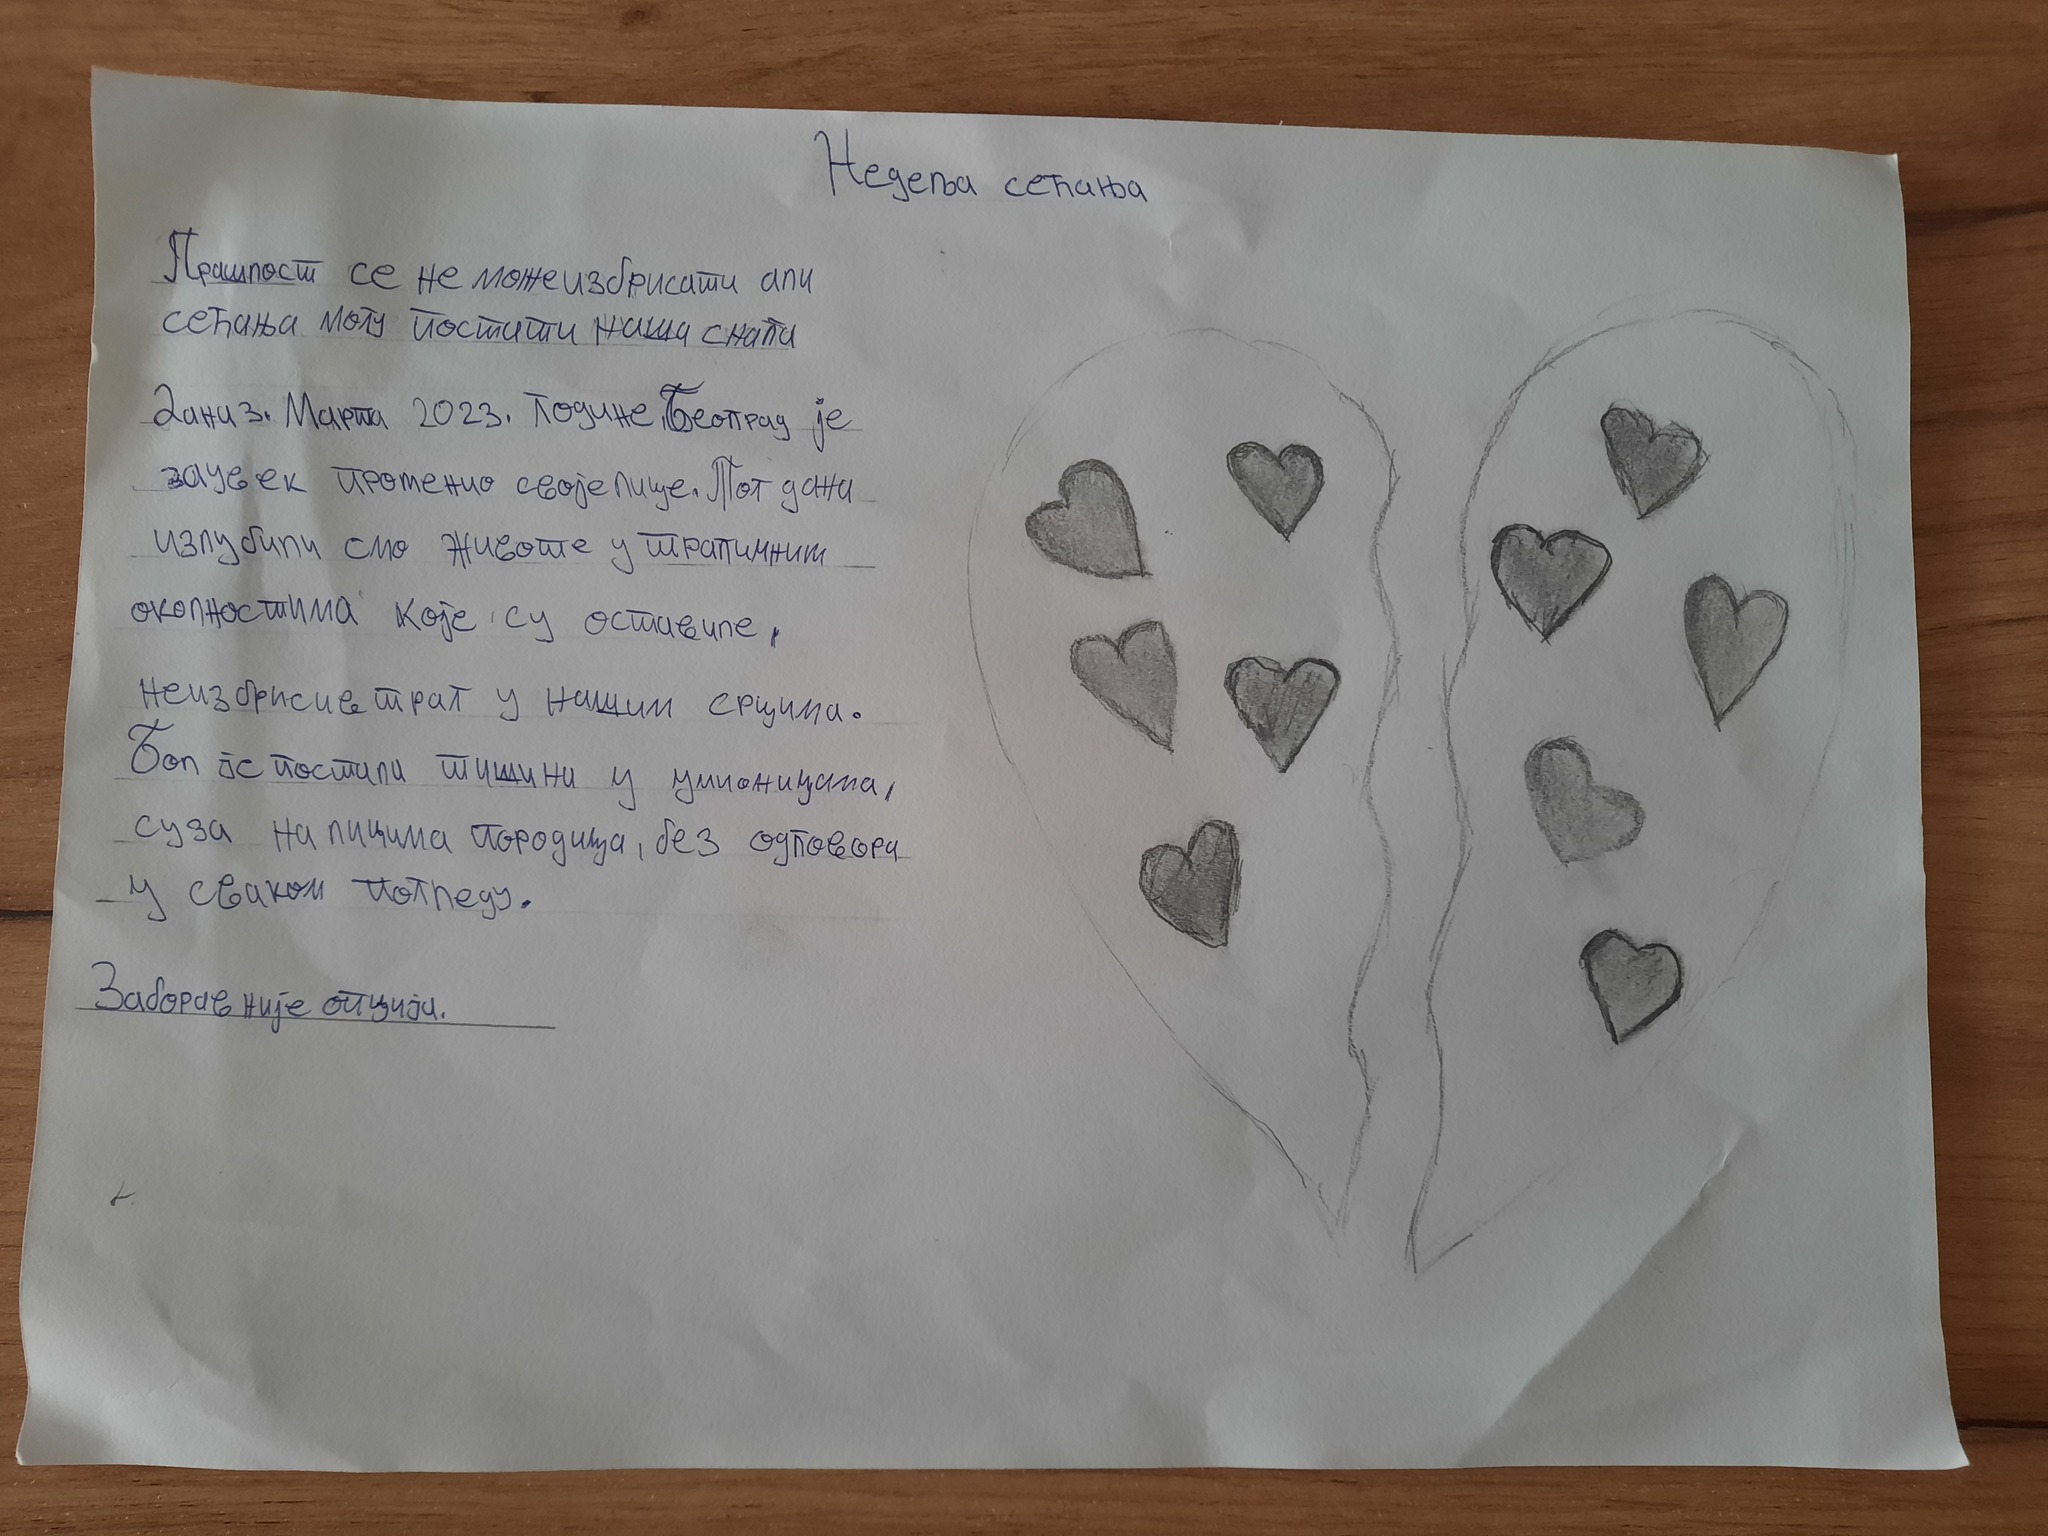 Недеља сећања
Прошлост се не можеизбрисати али
сећања могу постати наша снага
Дана 3. Марта 2023. године, Београд је
заувек променио своје лице. Тог дана
изгубили смо животе у трагичним
околностима које су оставиле,
неизбрисив траг у нашим срцима.
Бол је постала тишина у учионицама,
суза на лицима породица, без одговора
у сваком погледу.
Заборав није опција.